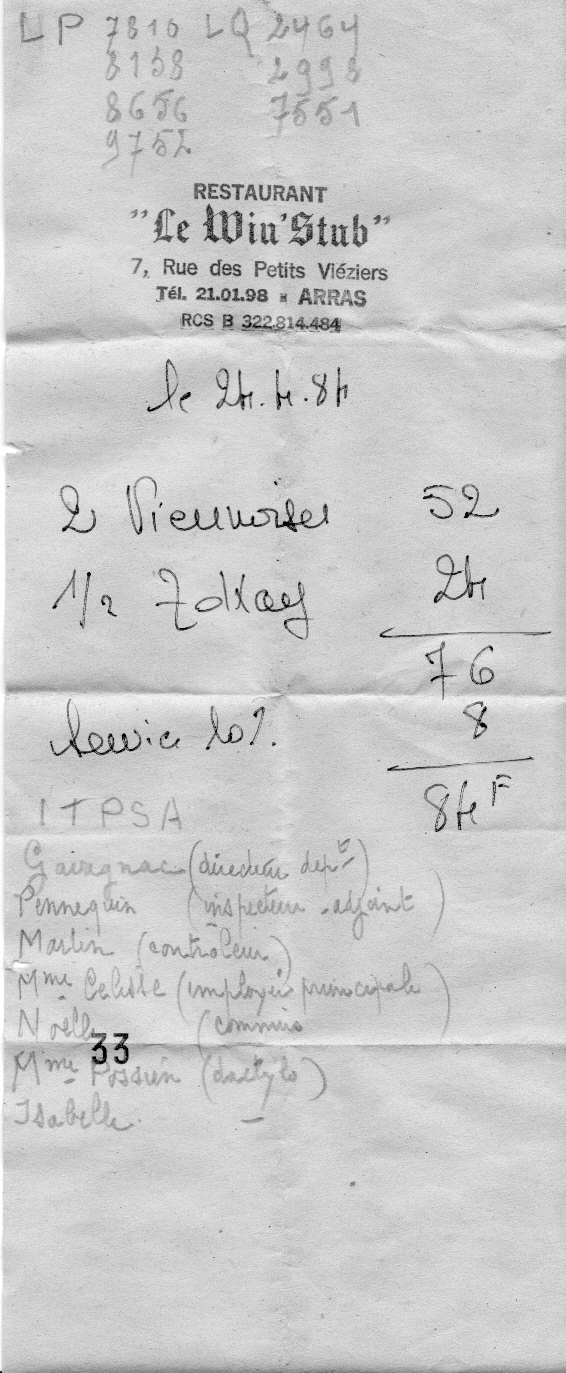 LP 7810 LQ 2464
8158 2998
8656 7551
9752
RESTAURANT
"Le Win'Stub"
7, Rue des Petits Viéziers
Tél. 21.01.98 ARRAS
RCS B 322.814.484
le 24.4.84
2 Viennoises 52
1/2 Tokay 24
76
Service 10%. 8
84F
ITPSA
(directeur dep^t)
Pennequin (inspecteur-adjoint)
Martin (contrôleur)
Mme Celisse (employée principale)
Noëlle (commis
33
Mme Possien (dactylo)
Isabelle. —